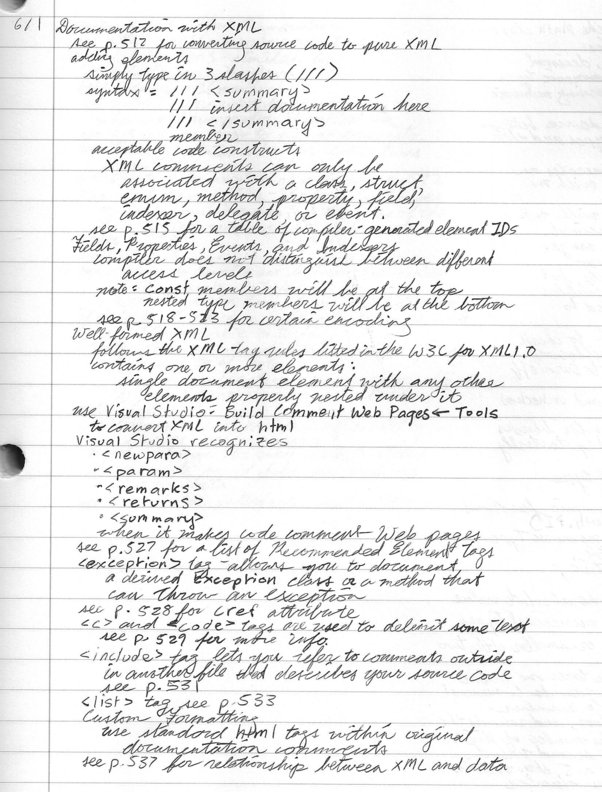 6/1 Documentation with XML
see p.512 for converting source code to pure XML
adding elements
simply type in 3 slashes (///)
syntax = /// <summary>
/// insert documentation here
/// </summary>
member
acceptable code constructs
XML comments can only be
associated with a class, struct,
enum, method, property, field,
indexer, delegate, or event.
see p.515 for a table of compiler-generated element IDs
Fields, Properties, Events, and Indexers
compiler does not distinguish between different
access levels
note: const members will be at the top
nested type members will be at the bottom
see p 518-523 for certain encoding
Well-formed XML
follows the XML-tag rules listed in the W3C for XML1.0
contains one or more elements:
single document element with any other
elements properly nested under it
use Visual Studio - Build Comment Web Pages ← Tools
to convert XML into html
Visual Studio recognizes
· <newpara>
· <param>
· <remarks>
· <returns>
· <summary>
when it makes code comment Web pages
see p.527 for a list of Recommended Element tags
<exception> tag allows you to document
a derived Exception class or a method that
can throw an exception
see p. 528 for cref attribute
<c> and <code> tags are used to delimit some text
see p 529 for more info.
<include> tag lets you refer to comments outside
in another file that describes your source code
see p.531
<list> tag, see p.533
Custom Formatting
use standard html tags within original
documentation comments
see p.537 for relationship between XML and data